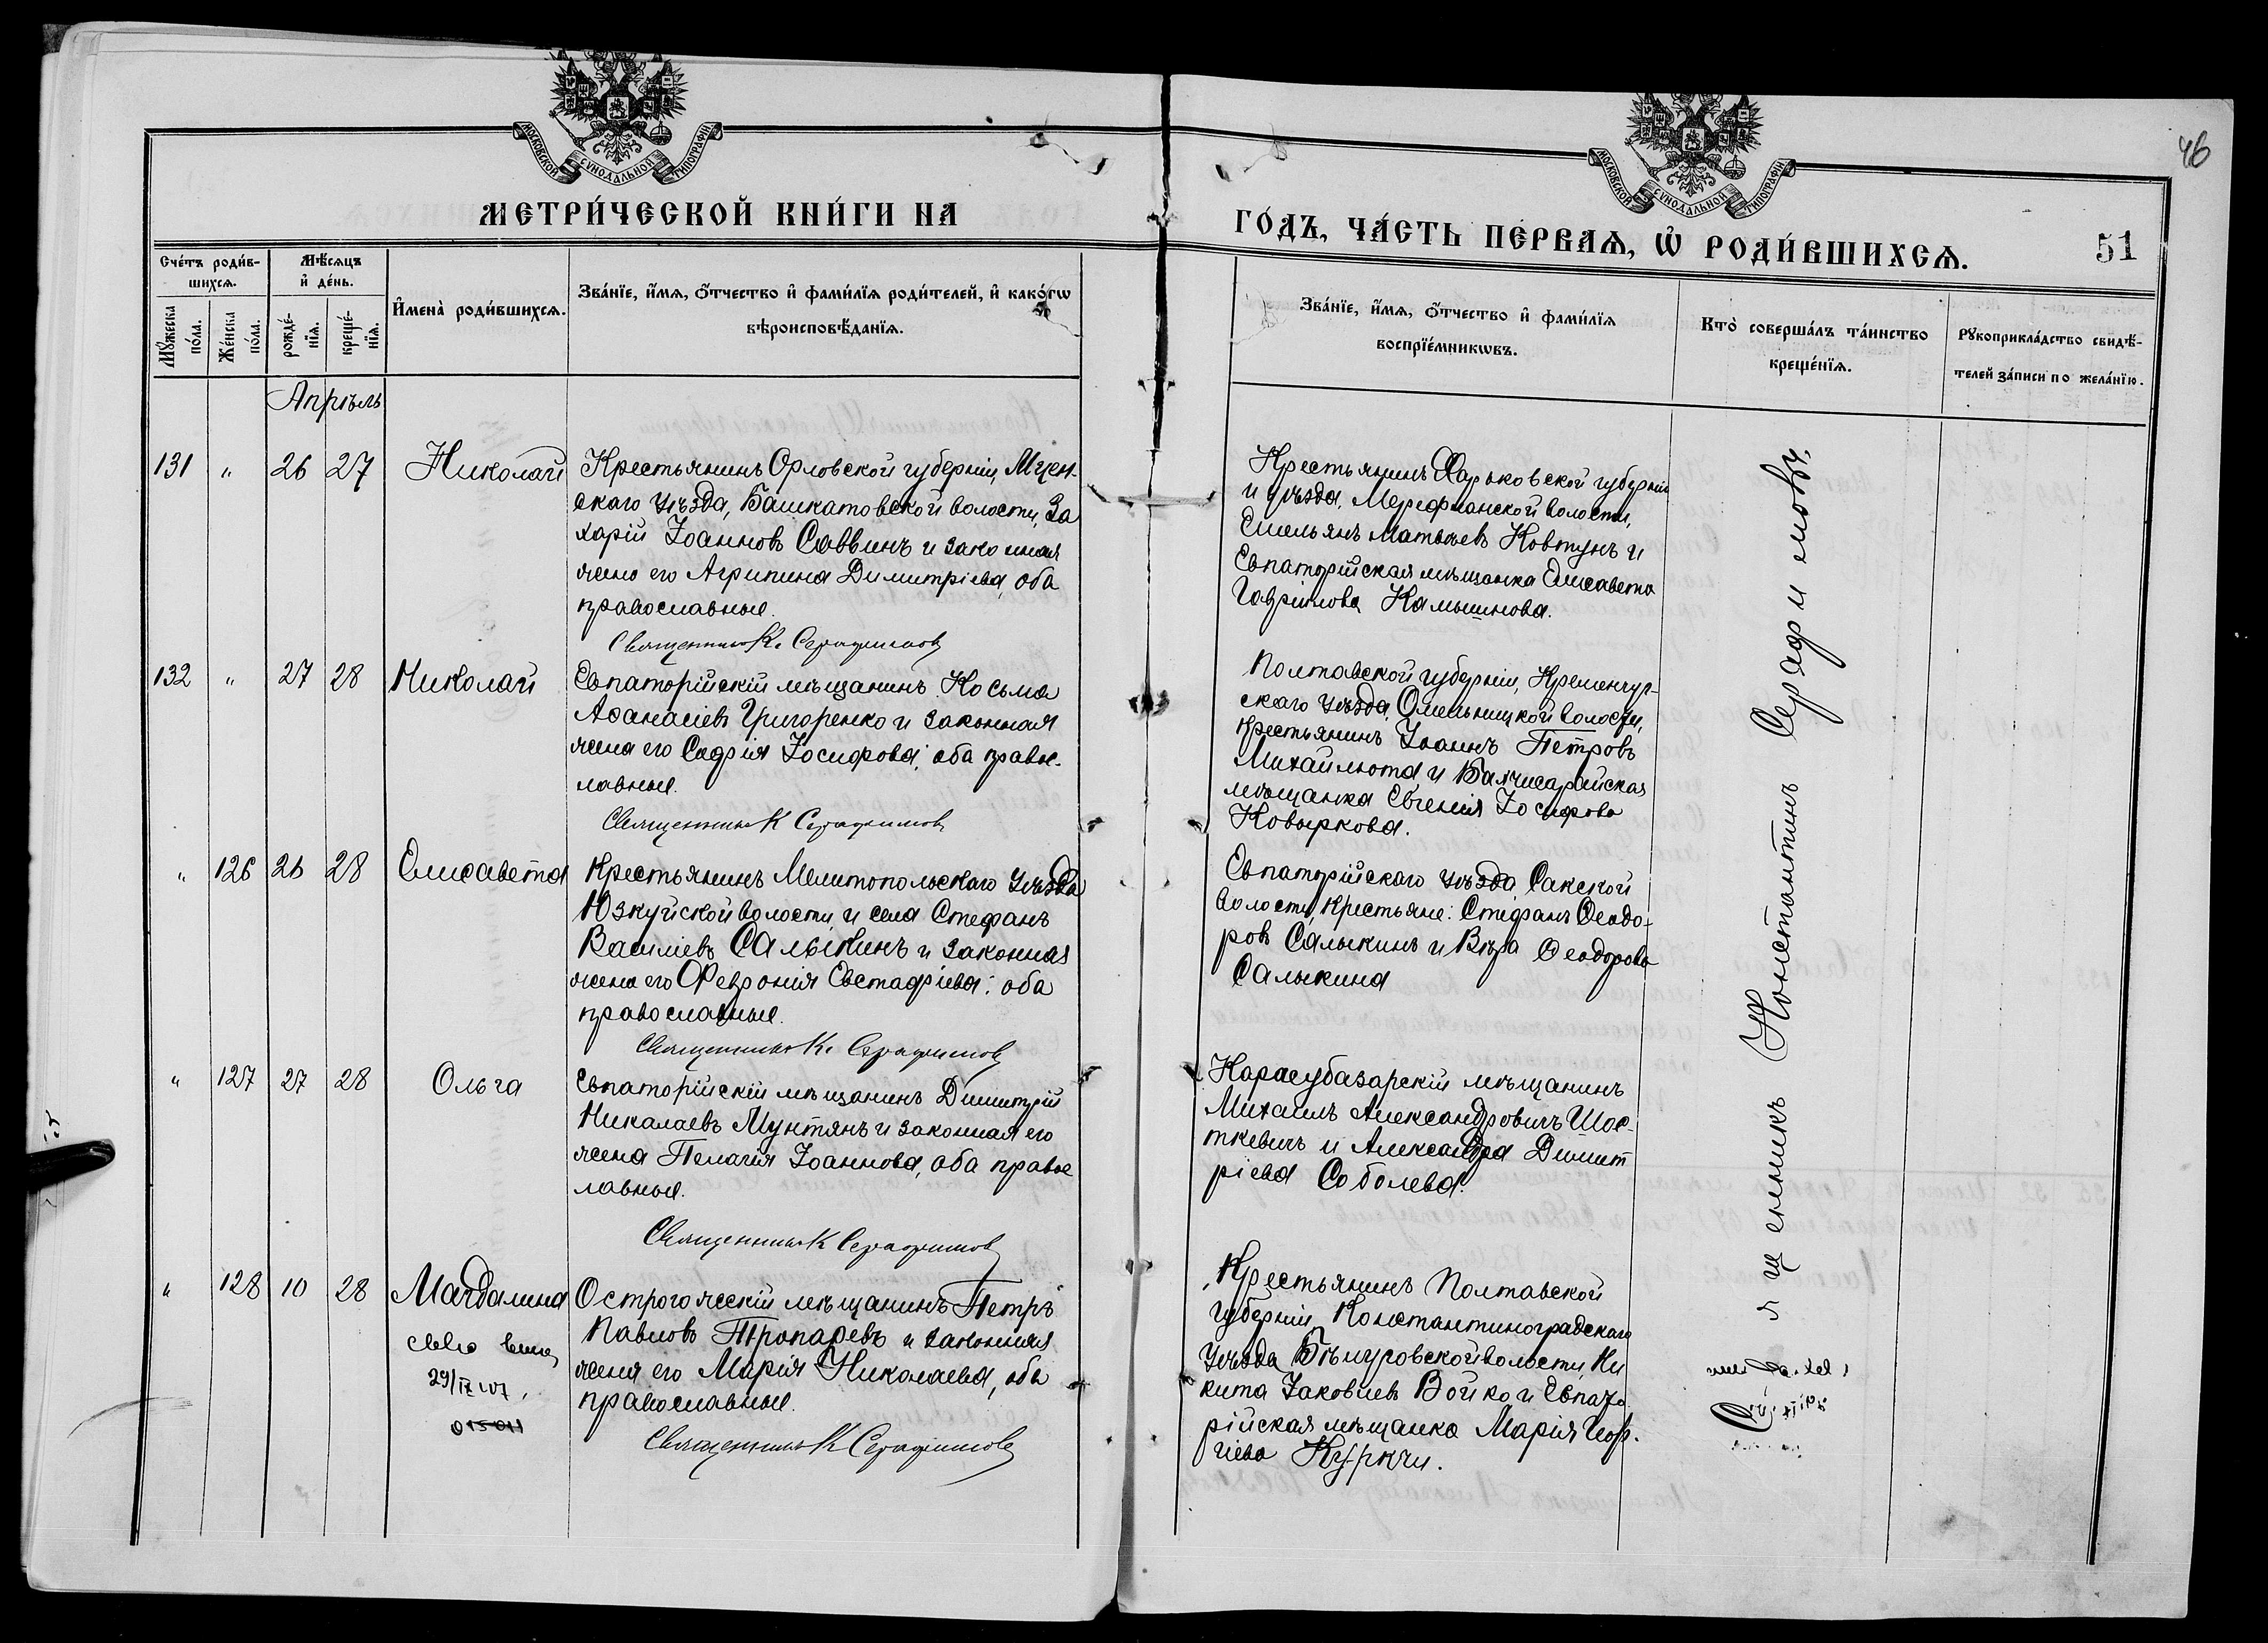 МОСКОВСКОЙ СѴНОДАЛЬНОЙ ТИПОГРАФІИ
МОСКОВСКОЙ СѴНОДАЛЬНОЙ ТИПОГРАФІИ
46
МЕТРИ́ЧЕСКОЙ КНИ́ГИ НА
ГО́ДЪ, ЧА́СТЬ ПЕ́РВАѦ, Ѡ҆ РОДИ́ВШИХСѦ.
51
Сче́тъ роди́в-
шихсѧ.
Мѣ́сѧцъ
и҆ де́нь.
Мꙋ́жеска
по́ла.
Же́нска
по́ла.
рожде́-
нїѧ.
креще́-
нїѧ.
И҆мена̀ роди́вшихсѧ.
Зва́нїе, и҆́мѧ, ѻ҆́тчество и҆ фами́лїѧ роди́телей, и҆ како́гѡ
вѣроисповѣ́данїѧ.
Зва́нїе, и҆́мѧ, ѻ҆́тчество и҆ фами́лїѧ
воспрїе́мникѡвъ.
Кто̀ соверша́лъ та́инство
креще́нїѧ.
Рꙋкоприкла́дство свидѣ́-
телей за́писи по жела́нїю.
Апрѣль
131 " 26 27 Николай
Крестьянинъ Орловской губерніи, Мцен-
скаго уѣзда, Башкатовской волости, За
харій Іоанновъ Саввинъ и законная
жена его Агрипина Димитріева, оба
православные.
Священникъ К. Серафимовъ
Крестьянинъ Харьковской губерніи
и уѣзда, Мерефианской волости,
Емельянъ Матвѣевъ Ковтунъ и
Евпаторійская мѣщанка Елисавета
Гавріилова Камышнова.
132 " 27 28 Николай
Евпаторійскій мѣщанинъ Косьма
Аѳанасіевъ Григоренко и законная
жена его Софія Іосифова; оба правос-
лавные.
Священникъ К Серафимовъ
Полтавской губерніи, Кременчуг-
скаго уѣзда, Омельницкой волости,
крестьянинъ Іоаннъ Петровъ
Михайлюта и Бахчисарайская
мѣщанка Евгенія Іосифова
Новыркова.
" 126 26 28 Елисавета
Крестьянинъ Мелитопольскаго уѣзда
Юзкуйской волости и села Стефанъ
Василіевъ Салыкинъ и законная
жена его Феврония Евстафіева: оба
православные.
Священникъ К. Серафимовъ
Евпаторійскаго уѣзда Сакской
волости, крестьяне: Стефанъ Ѳеодо-
ровъ Салыкинъ и Вѣра Ѳеодорова
Салыкина
" 127 27 28 Ольга
Евпаторійскій мѣщанинъ Димитрій
Николаевъ Мунтянъ и законная его
жена Пелагія Іоаннова, оба правос
лавные.
Священникъ К Серафимовъ
Карасубазарскій мѣщанинъ
Михаилъ Александровичъ Шос-
ткевичъ и Александра Димит
ріева Соболева.
" 128 10 28 Магдалина
29/IX
Острогожскій мѣщанинъ Петръ
Павловъ Тропаревъ и законная
жена его Марія Николаева, оба
православные.
Священникъ К Серафимовъ
Крестьянинъ Полтавской
губерніи, Константиноградскаго
уѣзда Бѣлуровской волости, Ни
кита Іаковлевъ Войко и Евпато
рійская мѣщанка Марія Геор-
гіева Куркчи.
ященникъ Константинъ Серафимовъ.